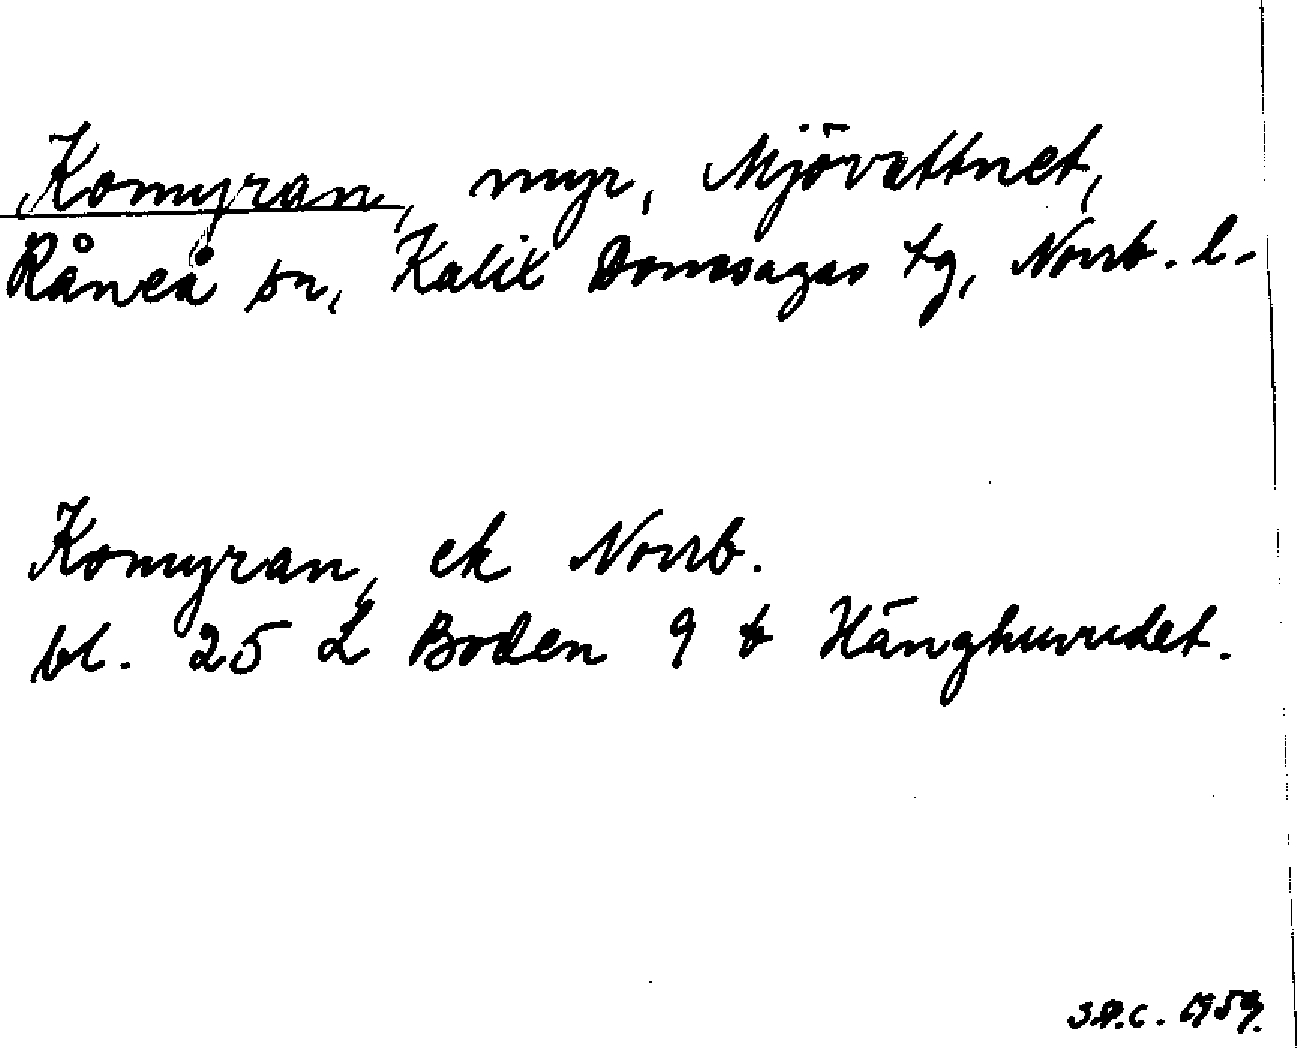 Komyran, myr, Mjövattnet,
Råneå sn, Kalix Domsagas tg, Norrb. l.
Komyran, ek Norrb.
bl. 25 L Boden 9 b Hänghuvudet.
1959.